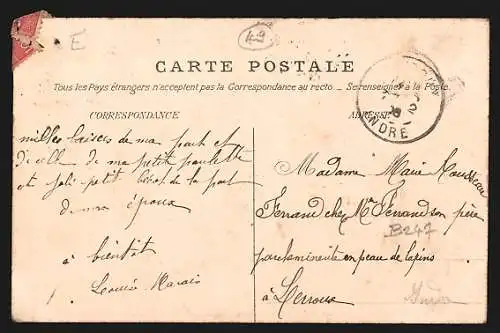 E
49
CARTE POSTALE
Tous les Pays étrangers n'acceptent pas la Correspondance au recto. _ Se renseigner à la Poste.
CORRESPONDANCE
ADRESSE
INDRE
milles baisers de ma part et
de celle de ma petite paulette
et joli petit de la part
de mon époux
à bientôt
Marais
Madame Marie
Ferrand chez Mr Ferrand son père
en peau de lapins
à Leroux
B247
Indre